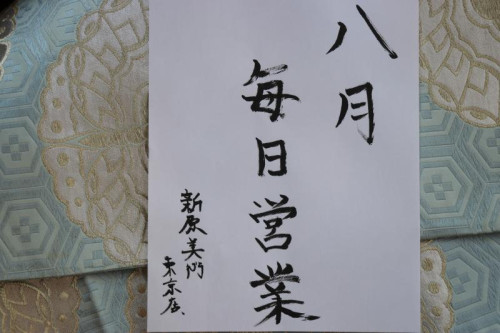 八月
毎日営業
新原美術
東京店、